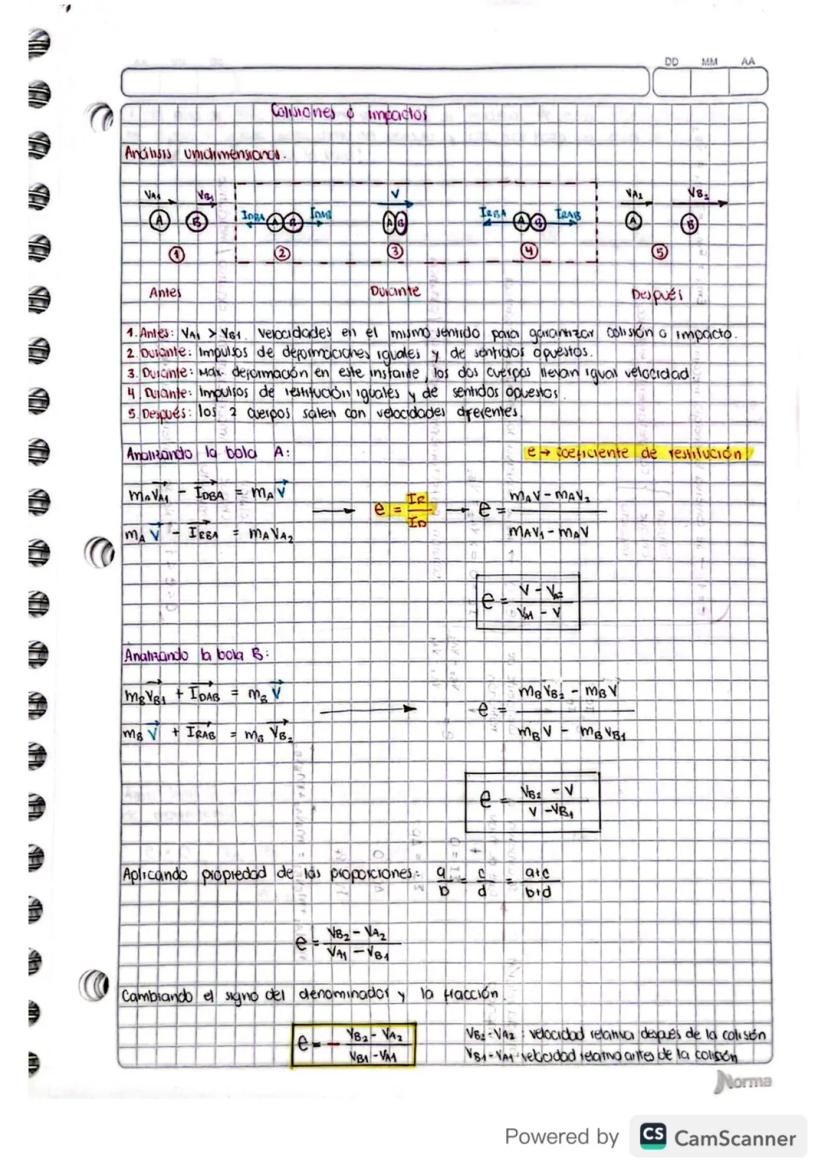 DD MM AA
Colisiones o impactos
Análisis unidimensional.
VA1 VB1 V VA2 VB2
A B IDBA A B IDAB A B IRBA A B IRAB A B
1 2 3 4 5
Antes Durante Después
1. Antes: VA1 > VB1. Velocidades en el mismo sentido para garantizar colisión o impacto.
2 Durante: Impulsos de deformaciones iguales y de sentidos opuestos.
3. Durante: Max. deformación en este instante, los dos cuerpos llevan igual velocidad.
4 Durante: Impulsos de restitución iguales y de sentidos opuestos
5 Después: los 2 cuerpos salen con velocidades diferentes.
Analizando la bola A: e → coeficiente de restitución
mA VA1 - IDBA = mA V
mA V - IRBA = mA VA2
→ e = IR / ID → e = mAV - mAV2 / mAV1 - mAV
e = V - VA2 / VA1 - V
Analizando la bola B:
mB VB1 + IDAB = mB V
mB V + IRAB = mB VB2
→ e = mB VB2 - mB V / mB V - mB VB1
e = VB2 - V / V - VB1
Aplicando propiedad de las proporciones: a/b = c/d = a+c/b+d
e = VB2 - VA2 / VA1 - VB1
Cambiando el signo del denominador y la fracción.
e = - VB2 - VA2 / VB1 - VA1
VB2 - VA2 : velocidad relativa después de la colisón
VB1 - VA1 : velocidad relativa antes de la colisón
Norma
Powered by CS CamScanner